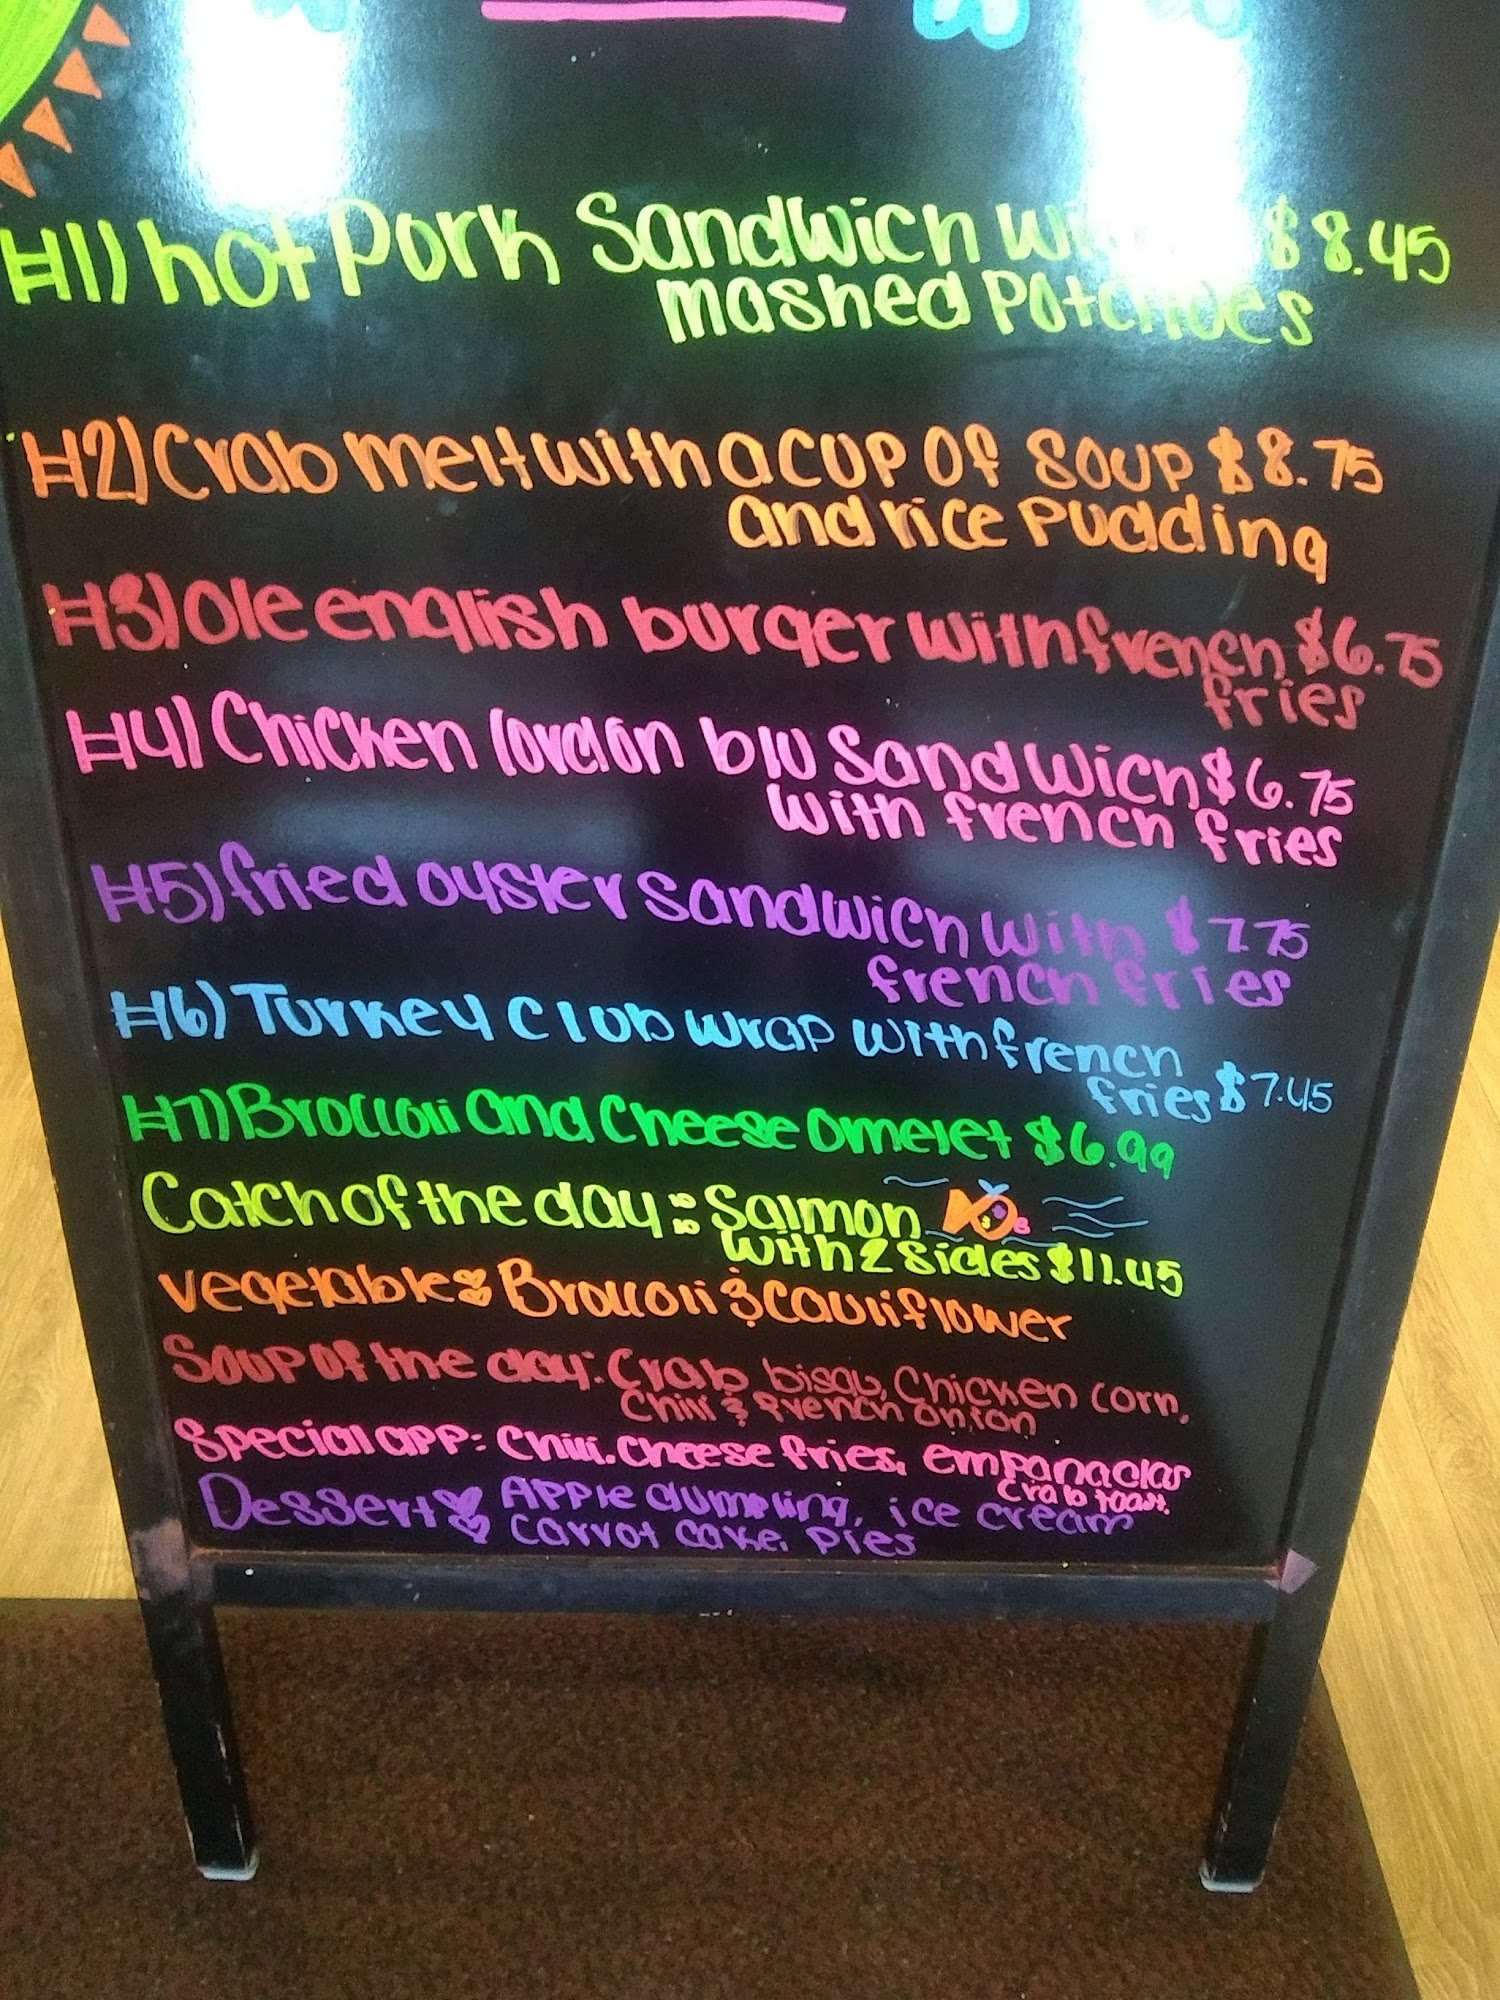 #1) hot Pork Sandwich $8.45
mashed Potatoes
#2) Crab melt with a cup of soup $8.75
and rice pudding
#3) Ole english burger with french $6.75
fries
#4) Chicken Cordon blu Sandwich $6.75
with french fries
#5) fried oyster sandwich with $7.75
french fries
#6) Turkey Club wrap with french
fries $7.45
#7) Broccoli and Cheese omelet $6.99
Catch of the day: Salmon
with 2 sides $11.45
vegetable: Broccoli & Cauliflower
Soup of the day: Crab bisqu, Chicken corn,
Chili & french onion
Special app: Chili. Cheese fries, empanadas
Crab toast.
Dessert: Apple dumpling, ice cream
Carrot cake, pies